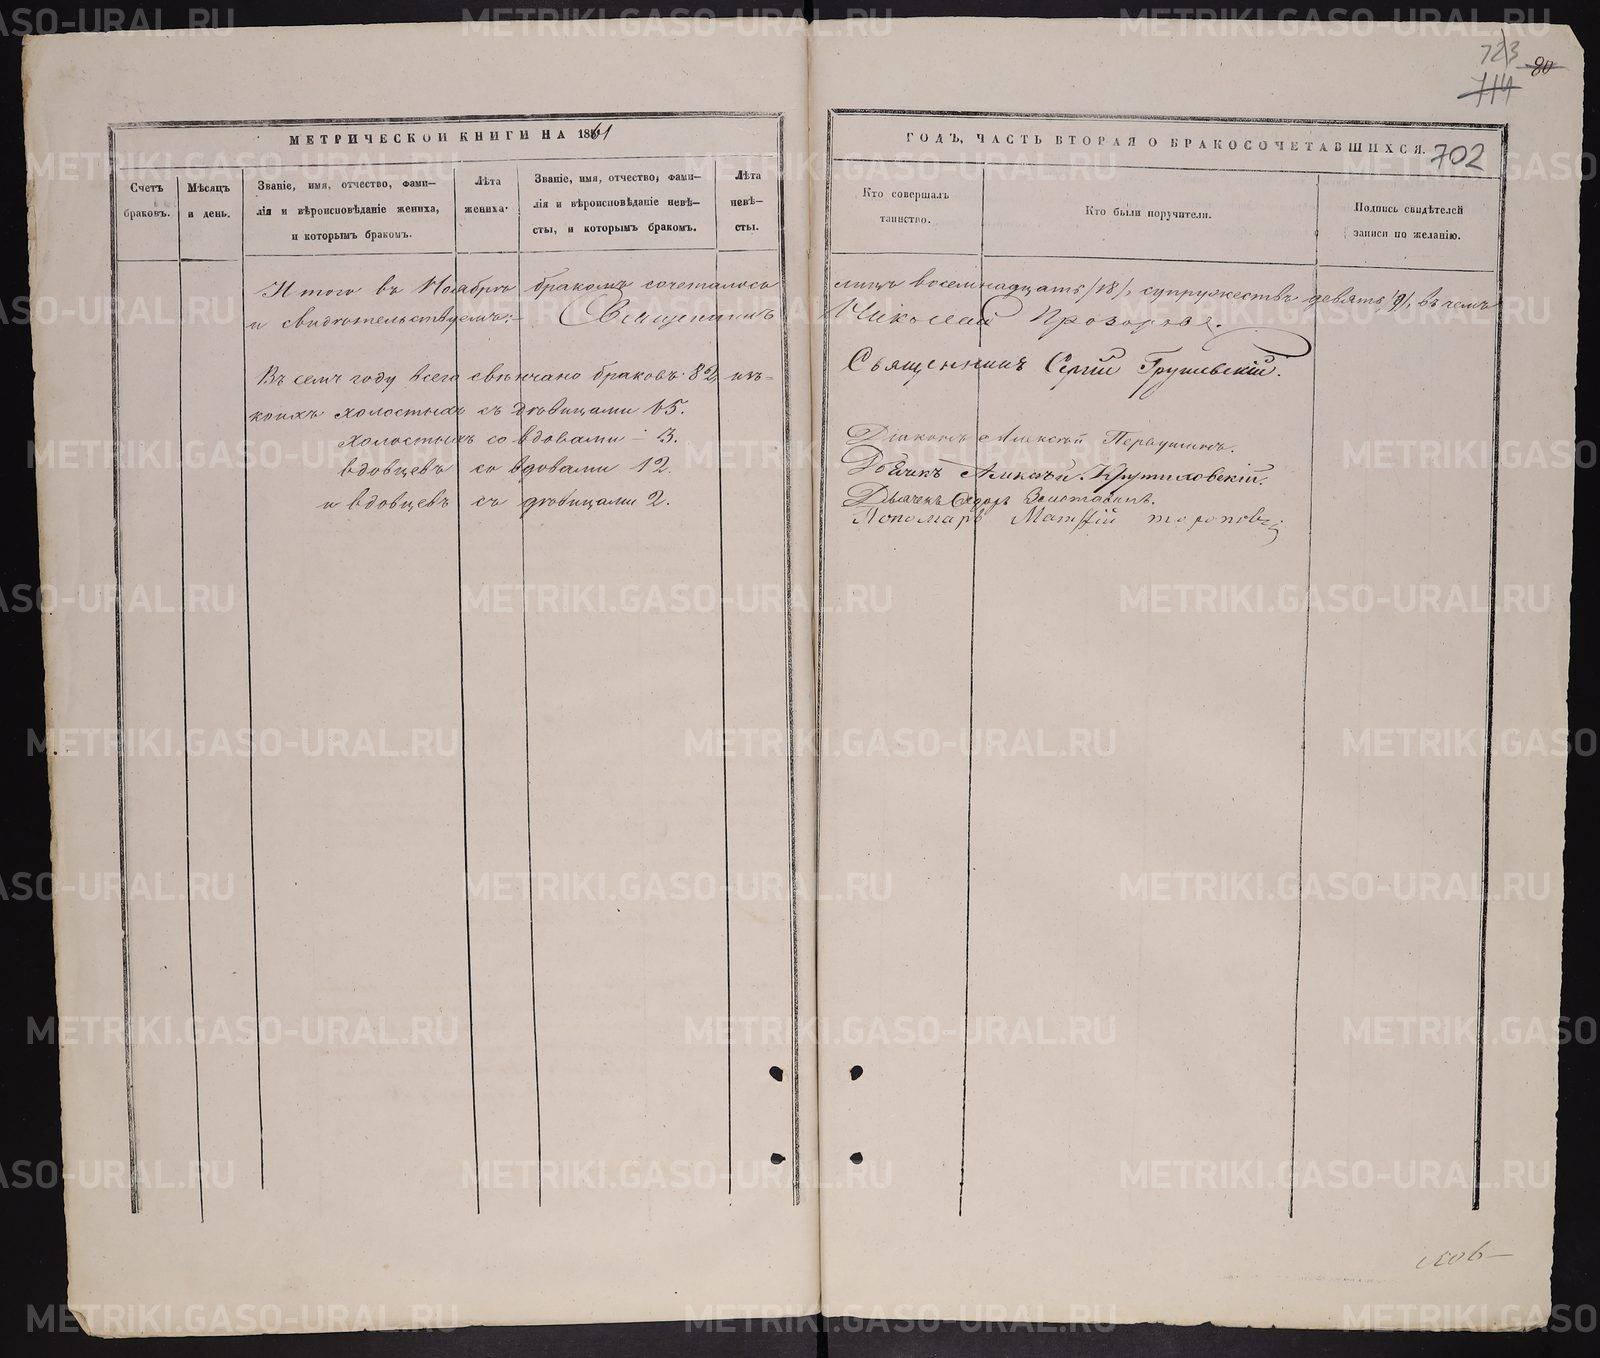 723
80
714
МЕТРИЧЕСКОЙ КНИГИ НА 1861
ГОДЪ, ЧАСТЬ ВТОРАЯ О БРАКОСОЧЕТАВШИХСЯ.
702
Счетъ браковъ.
Мѣсяцъ и день.
Званіе, имя, отчество, фами-
лія и вѣроисповѣданіе жениха,
и которымъ бракомъ.
Лѣта жениха.
Званіе, имя, отчество, фами-
лія и вѣроисповѣданіе невѣ-
сты, и которымъ бракомъ.
Лѣта невѣ-
сты.
Кто совершалъ
таинство.
Кто были поручители.
Подпись свидѣтелей
записи по желанію.
Итого въ Ноябрѣ бракомъ сочеталось лицъ восемнадцать /18/, супружествъ девять /9/, въ чемъ
и свидѣтельствуемъ: Священникъ Николай Прозоровъ.
Священникъ Сергій Грушевскій.
Въ семъ году всего свѣнчано браковъ 82 изъ-
коихъ холостыхъ съ дѣвицами 65.
холостыхъ со вдовами - 3.
вдовцевъ со вдовами 12.
и вдовцевъ съ дѣвицами 2.
Діаконъ Алексѣй Первушинъ.
Дьячекъ Алексѣй Крутиховскій.
Дьячекъ
Пономарь Матѳій Тороповъ
METRIKI.GASO-URAL.RU